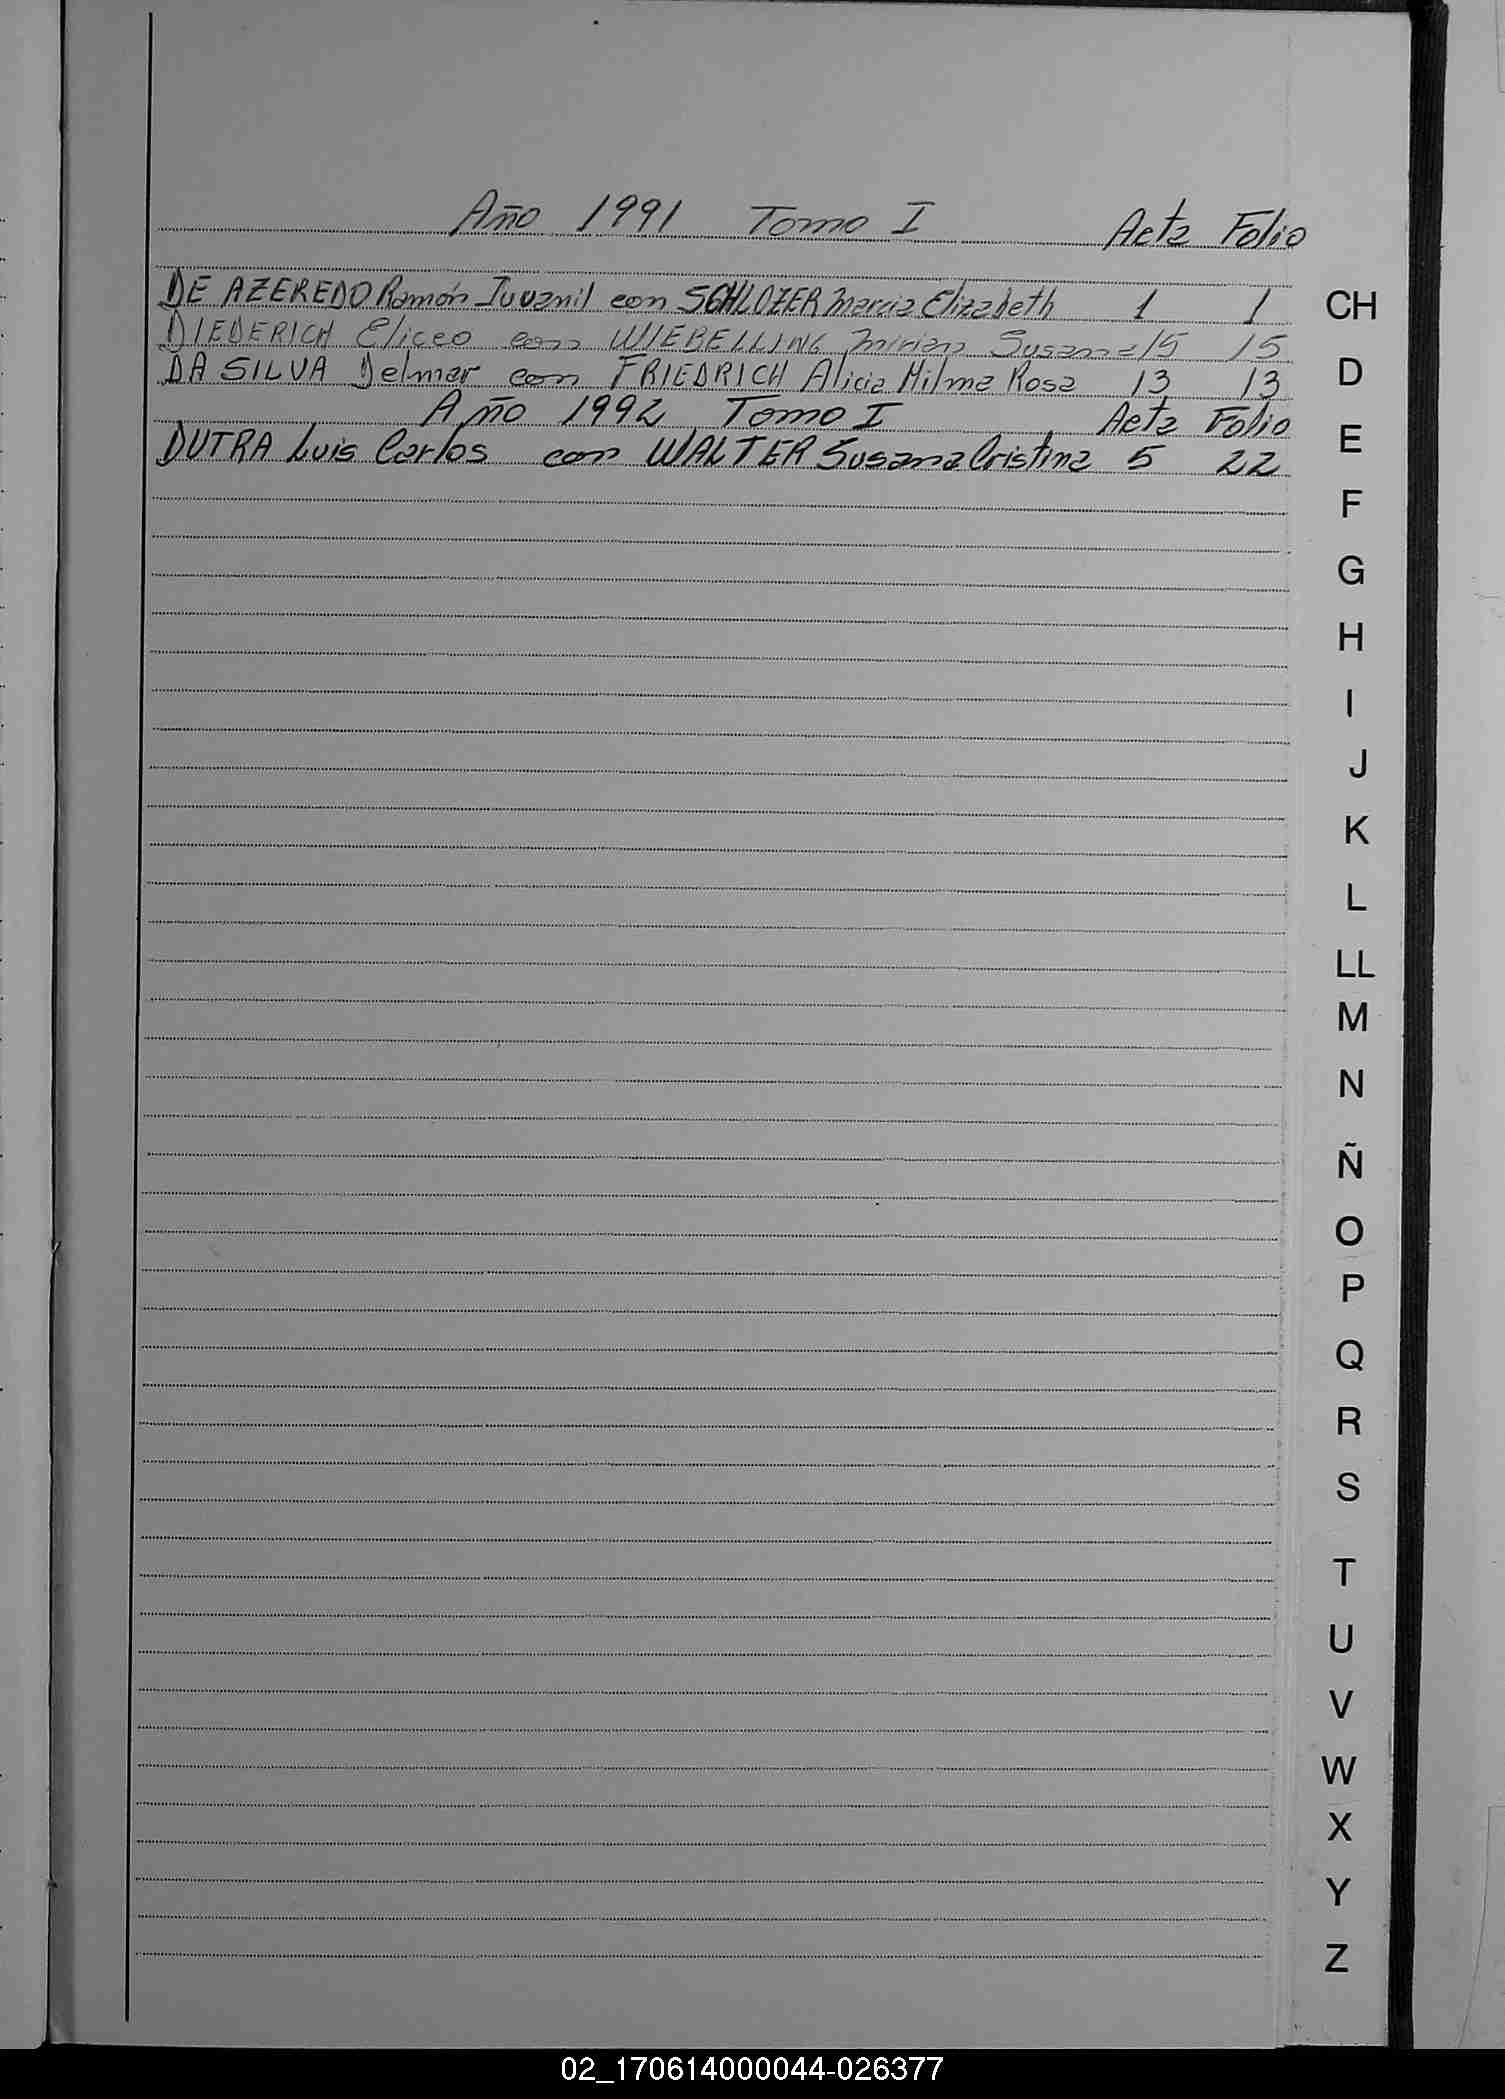 Año 1991 Tomo I Acta Folio
DE AZEREDO Ramón Juvenil con SCHLOZER Marcia Elizabeth 1 1
DIEDERICH Eliceo con WIEBELLING Mirian Susana 15 15
DA SILVA Delmar con FRIEDRICH Alicia Hilma Rosa 13 13
Año 1992 Tomo I Acta Folio
DUTRA Luis Carlos con WALTER Susana Cristina 5 22
CH
D
E
F
G
H
I
J
K
L
LL
M
N
Ñ
O
P
Q
R
S
T
U
V
W
X
Y
Z
02_170614000044-026377